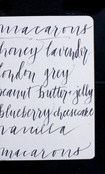 macarons
honey lavender
london grey
peanut butter + jelly
blueberry cheesecake
vanilla
macarons